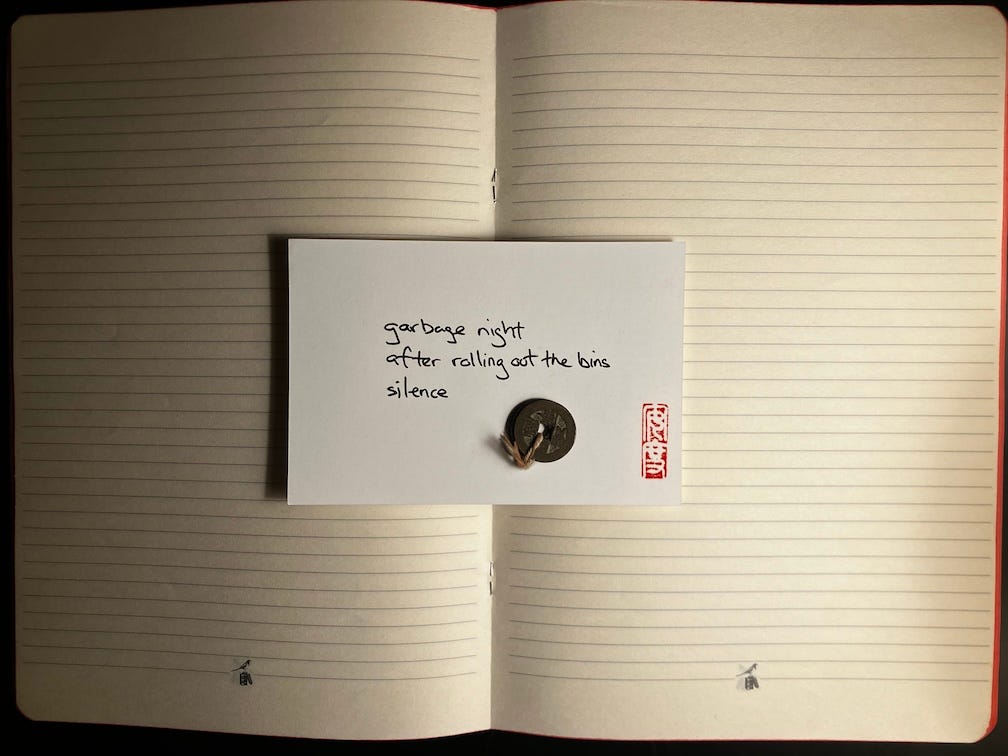 garbage night
after rolling out the bins
silence